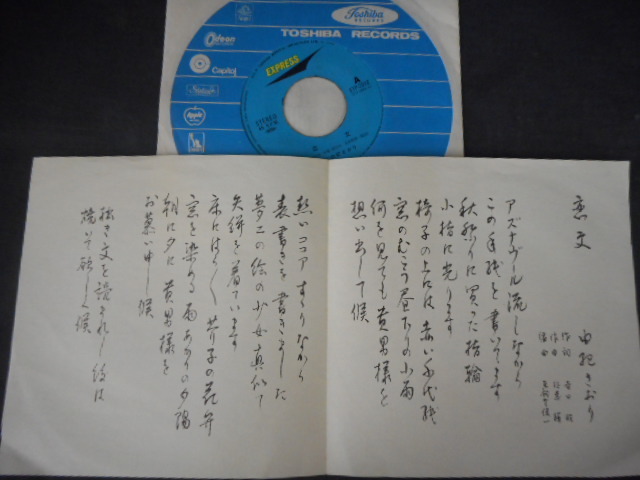 Toshiba
RECORDS
TOSHIBA RECORDS
Odeon
Capitol
Apple
EXPRESS
A
STEREO
恋文
由紀さおり
作詞 吉田 旺
作曲 佐藤 勝
編曲
アズナヴール流しながら
この手紙を書いてます
秋祭りに買った指輪
小指に光ります
椅子の上には赤い千代紙
窓のむこう昼下りの小雨
何を見ても貴男様を
想い出して候
熱いココアすすりながら
表書きを書きました
夢二の絵の少女真似て
矢絣を着ています
床にはらはら芥子の花弁
窓を染める雨あがりの夕陽
朝に夕に貴男様を
お慕い申し候
拙き文を読まれし後は
焼いて欲しく候